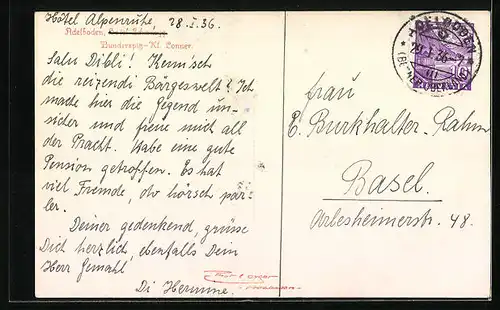 Hôtel Alpenruhe 28.I.36.
Adelboden,
Wunderspig-Kl. Lonner.
Salü Dibli! Kennsch
die reizendi Bärgeswelt! Ich
mache hier die Gegend un-
sicher und freue mich all
der Pracht. Habe eine gute
Pension getroffen. Es hat
viel Fremde, do hörsch par-
ler.
Deiner gedenkend, grüsse
Dich herzlich, ebenfalls Dein
Herr Gemahl
Di Hermine.
ADELBODEN
29.I.36-7
(BERNER OBERLAND)
Frau
E. Burkhalter-Rahm
Basel.
Arlesheimerstr. 48.